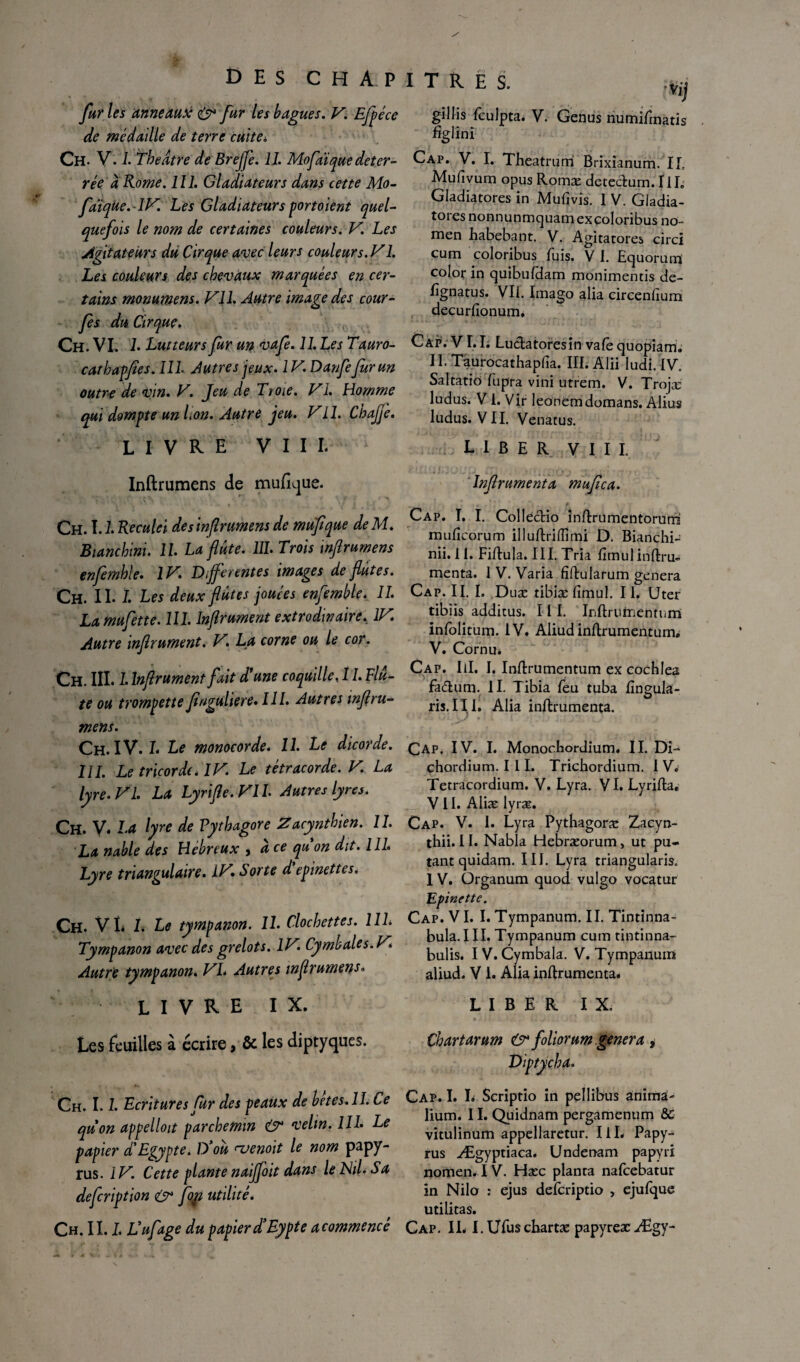 DES CHAPITRES. vij
ſur les anneaux & ſur les bagues. V. Eſpéce
de médaille de terre cuite.
CH. V. I. Theâtre de Breſſe. II. Moſaïque deter-
rée à Rome. III. Gladiateurs dans cette Mo-
ſaïque. IV. Les Gladiateurs portoient quel-
quefois le nom de certaines couleurs. V. Les
Agitateurs du Cirque avec leurs couleurs. VI.
Les couleurs des chevaux marquées en cer-
tains monumens. VII. Autre image des cour-
ſes du Cirque.
CH. VI. I. Lutteurs ſur un vaſe. II. Les Tauro-
cathapſies. III. Autres jeux. IV. Danſe ſur un
outre de vin. V. Jeu de Troie. VI. Homme
qui dompte un lion. Autre jeu. VII. Chaſſe.
LIVRE VIII.
Inſtrumens de muſique.
CH. I. I. Reculei des inſtrumens de muſique de M.
Bianchini. II. La flûte. III. Trois inſtrumens
enſemble. IV. Differentes images de flûtes.
CH. II. I. Les deux flûtes jouées enſemble. II.
La muſette. III. Inſtrument extrodinaire. IV.
Autre inſtrument. V. La corne ou le cor.
CH. III. I. Inſtrument fait d'une coquille. II. Flû-
te ou trompette ſinguliere. III. Autres inſtru-
mens.
CH. IV. I. Le monocorde. II. Le dicorde.
III. Le tricorde. IV. Le tétracorde. V. La
lyre. VI. La Lyriſte. VII. Autres lyres.
CH. V. I. La lyre de Pythagore Zacynthien. II.
La nable des Hebreux, à ce qu'on dit. III.
Lyre triangulaire. IV. Sorte d'epinettes.
CH. VI. I. Le tympanon. II. Clochettes. III.
Tympanon avec des grelots. IV. Cymbales. V.
Autre tympanon. VI. Autres inſtrumens.
LIVRE IX.
Les feuilles à écrire, & les diptyques.
CH. I. I. Ecritures ſur des peaux de bêtes. II. Ce
qu'on appelloit parchemin & velin. III. Le
papier d'Egypte. D'où venoit le nom papy-
rus. IV. Cette plante naiſſoit dans le Nil. Sa
deſcription & ſon utilité.
CH. II. I. L'uſage du papier d'Eypte a commencé
gillis ſculpta. V. Genus numiſmatis
figlini
CAP. V. I. Theatrum Brixianum. II.
Muſivum opus Romæ detectum. III.
Gladiatores in Muſivis. IV. Gladia-
tores nonnunmquam ex coloribus no-
men habebant. V. Agitatores circi
cum coloribus ſuis. VI. Equorum
color in quibuſdam monimentis de-
ſignatus. VII. Imago alia circenſium
decurſionum.
CAP. VI. I. Luctatores in vaſe quopiam.
II. Taurocathapſia. III. Alii ludi. IV.
Saltatio ſupra vini utrem. V. Trojæ
ludus. VI. Vir leonem domans. Alius
ludus. VII. Venatus.
LIBER VIII.
Inſtrumenta muſica.
CAP. I. I. Collectio inſtrumentorum
muſicorum illuſtriſſimi D. Bianchi-
nii. II. Fiſtula. III. Tria ſimul inſtru-
menta. IV. Varia fiſtularum genera
CAP. II. I. Duæ tibiæ ſimul. II. Uter
tibiis additus. III. Inſtrumentum
inſolitum. IV. Aliud inſtrumentum.
V. Cornu.
CAP. III. I. Inſtrumentum ex cochlea
factum. II. Tibia ſeu tuba ſingula-
ris. III. Alia inſtrumenta.
CAP. IV. I. Monochordium. II. Di-
chordium. III. Trichordium. IV.
Tetracordium. V. Lyra. VI. Lyriſta.
VII. Aliæ lyræ.
CAP. V. I. Lyra Pythagoræ Zacyn-
thii. II. Nabla Hebræorum, ut pu-
tant quidam. III. Lyra triangularis.
IV. Organum quod vulgo vocatur
Epinette.
CAP. VI. I. Tympanum. II. Tintinna-
bula. III. Tympanum cum tintinna-
bulis. IV. Cymbala. V. Tympanum
aliud. VI. Alia inſtrumenta.
LIBER IX.
Chartarum & foliorum genera,
Diptycha.
CAP. I. I. Scriptio in pellibus anima-
lium. II. Quidnam pergamenum &
vitulinum appellaretur. III. Papy-
rus Ægyptiaca. Undenam papyri
nomen. IV. Hæc planta naſcebatur
in Nilo : ejus deſcriptio, ejuſque
utilitas.
CAP. II. I. Uſus chartæ papyreæ Ægy-